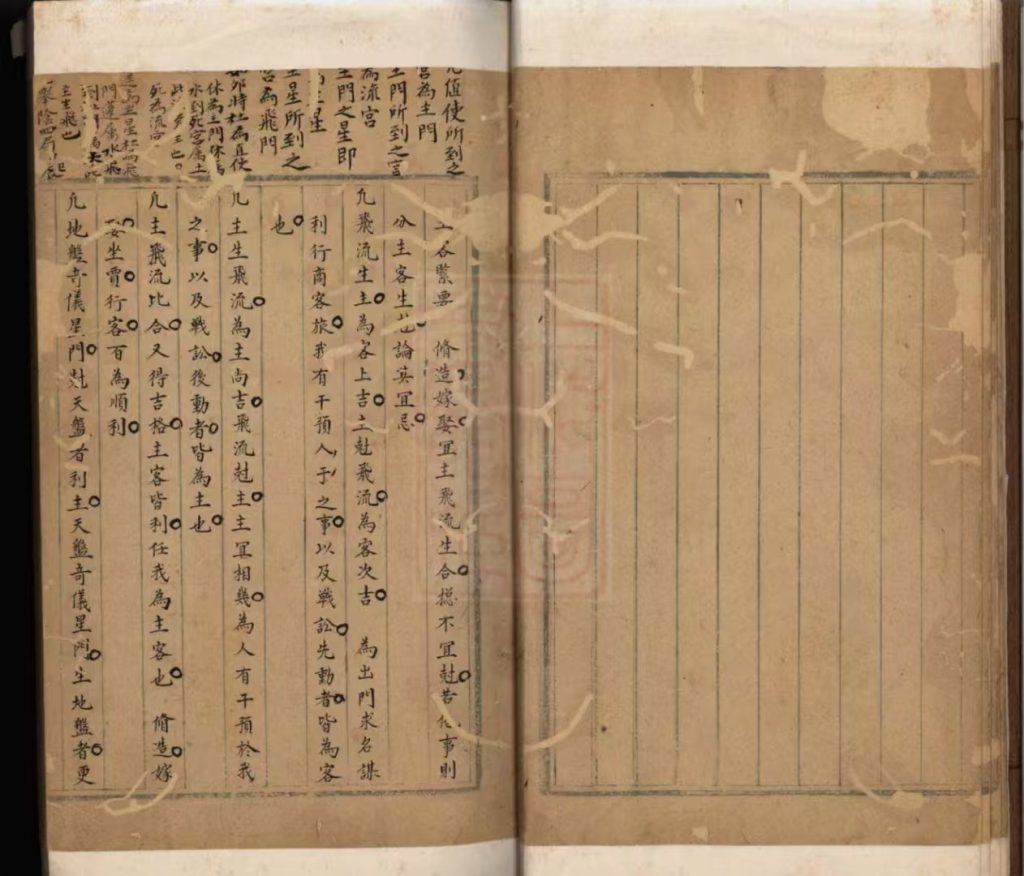 凡值使所到之
宮為主門
主門所到之宮
為流宮
主門之星即
主星
主星所到之
宮為飛門
卯時杜為直使
休為主門休為
水到死宮屬土
死為流宮
主生飛也
主客緊要　脩造嫁娶宜主飛流生合搃不宜尅苦他事則
分主客生尅論其宜忌
凡飛流生主為客上吉主尅飛流為客次吉　為出門求名謀
利行商客旅我有干預人于之事以及戰訟先動者皆為客
也
凡主生飛流為主尚吉飛流尅主主宜相幾為人有干預於我
之事以及戰訟後動者皆為主也
凡主飛流比合又得吉格主客皆利任我為主客也　脩造嫁
娶坐賈行客百為順利
凡地盤奇儀星門尅天盤者利主天盤奇儀星門生地盤者更